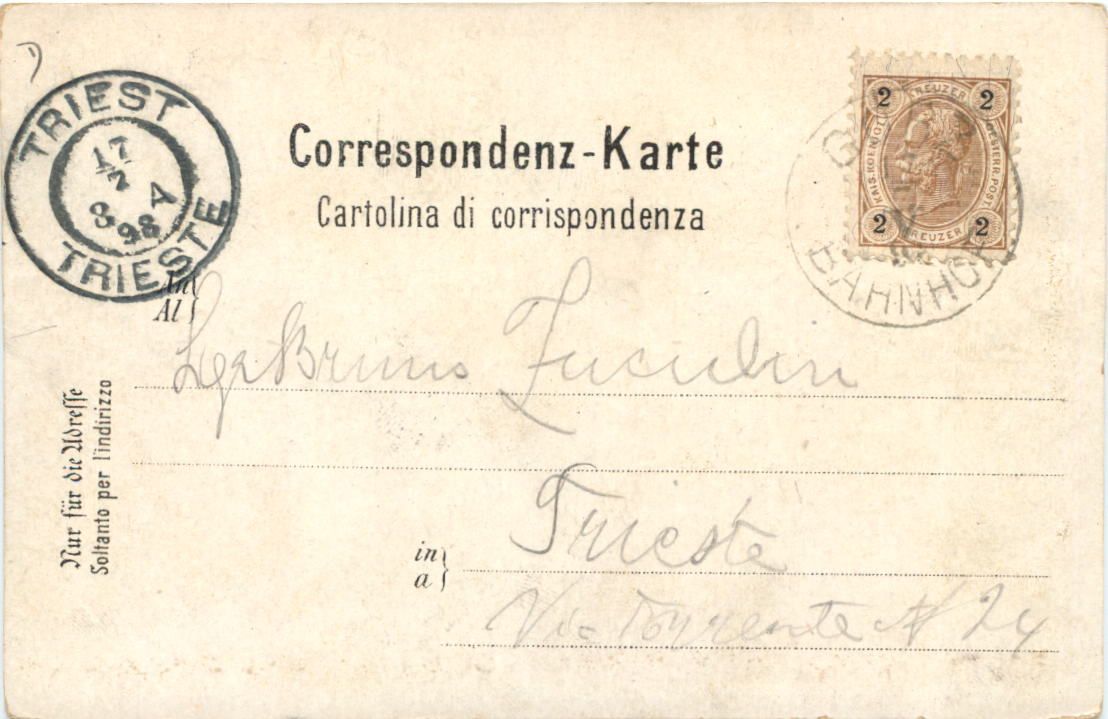 TRIEST
17
2
8 V
98
TRIESTE
Correspondenz-Karte
Cartolina di corrispondenza
2 KREUZER 2
KAIS. KOENIGL. OESTERR. POST.
2 KREUZER 2
BAHNHOF
An
Al
Bruno Fuculin
Trieste
in
a
Via Torrente N 24
Nur für die Adresse
Soltanto per l'indirizzo